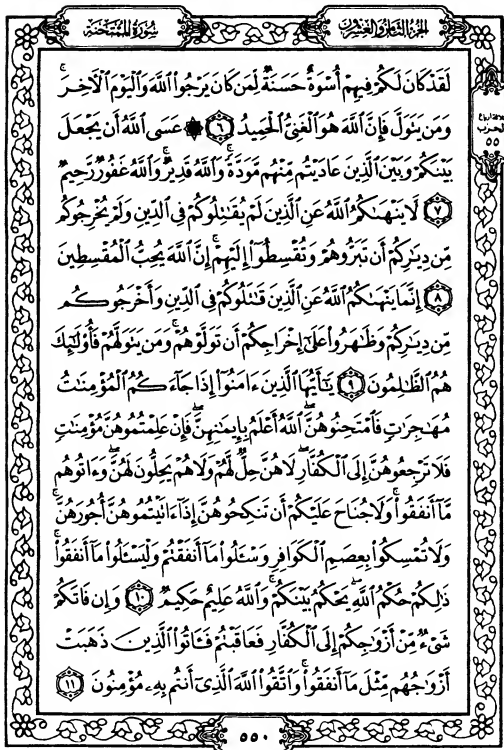 الجزء الثامن والعشرون
سورة الممتحنة
لَّقَدْ كَانَ لَكُمْ فِيهِمْ أُسْوَةٌ حَسَنَةٌ لِّمَن كَانَ يَرْجُوا۟ ٱللَّهَ وَٱلْيَوْمَ ٱلْـَٔاخِرَ ۚ
وَمَن يَتَوَلَّ فَإِنَّ ٱللَّهَ هُوَ ٱلْغَنِىُّ ٱلْحَمِيدُ ٦ ۞ عَسَى ٱللَّهُ أَن يَجْعَلَ
بَيْنَكُمْ وَبَيْنَ ٱلَّذِينَ عَادَيْتُم مِّنْهُم مَّوَدَّةً ۚ وَٱللَّهُ قَدِيرٌ ۚ وَٱللَّهُ غَفُورٌ رَّحِيمٌ
٧ لَّا يَنْهَىٰكُمُ ٱللَّهُ عَنِ ٱلَّذِينَ لَمْ يُقَـٰتِلُوكُمْ فِى ٱلدِّينِ وَلَمْ يُخْرِجُوكُم
مِّن دِيَـٰرِكُمْ أَن تَبَرُّوهُمْ وَتُقْسِطُوٓا۟ إِلَيْهِمْ ۚ إِنَّ ٱللَّهَ يُحِبُّ ٱلْمُقْسِطِينَ
٨ إِنَّمَا يَنْهَىٰكُمُ ٱللَّهُ عَنِ ٱلَّذِينَ قَـٰتَلُوكُمْ فِى ٱلدِّينِ وَأَخْرَجُوكُم
مِّن دِيَـٰرِكُمْ وَظَـٰهَرُوا۟ عَلَىٰٓ إِخْرَاجِكُمْ أَن تَوَلَّوْهُمْ ۚ وَمَن يَتَوَلَّهُمْ فَأُو۟لَـٰٓئِكَ
هُمُ ٱلظَّـٰلِمُونَ ٩ يَـٰٓأَيُّهَا ٱلَّذِينَ ءَامَنُوٓا۟ إِذَا جَآءَكُمُ ٱلْمُؤْمِنَـٰتُ
مُهَـٰجِرَٰتٍ فَٱمْتَحِنُوهُنَّ ۖ ٱللَّهُ أَعْلَمُ بِإِيمَـٰنِهِنَّ ۖ فَإِنْ عَلِمْتُمُوهُنَّ مُؤْمِنَـٰتٍ
فَلَا تَرْجِعُوهُنَّ إِلَى ٱلْكُفَّارِ ۖ لَا هُنَّ حِلٌّ لَّهُمْ وَلَا هُمْ يَحِلُّونَ لَهُنَّ ۖ وَءَاتُوهُم
مَّآ أَنفَقُوا۟ ۚ وَلَا جُنَاحَ عَلَيْكُمْ أَن تَنكِحُوهُنَّ إِذَآ ءَاتَيْتُمُوهُنَّ أُجُورَهُنَّ ۚ
وَلَا تُمْسِكُوا۟ بِعِصَمِ ٱلْكَوَافِرِ وَسْـَٔلُوا۟ مَآ أَنفَقْتُمْ وَلْيَسْـَٔلُوا۟ مَآ أَنفَقُوا۟ ۚ
ذَٰلِكُمْ حُكْمُ ٱللَّهِ ۖ يَحْكُمُ بَيْنَكُمْ ۚ وَٱللَّهُ عَلِيمٌ حَكِيمٌ ١٠ وَإِن فَاتَكُمْ
شَىْءٌ مِّنْ أَزْوَٰجِكُمْ إِلَى ٱلْكُفَّارِ فَعَاقَبْتُمْ فَـَٔاتُوا۟ ٱلَّذِينَ ذَهَبَتْ
أَزْوَٰجُهُم مِّثْلَ مَآ أَنفَقُوا۟ ۚ وَٱتَّقُوا۟ ٱللَّهَ ٱلَّذِىٓ أَنتُم بِهِۦ مُؤْمِنُونَ ١١
الحزب
٥٥
٥٥٠